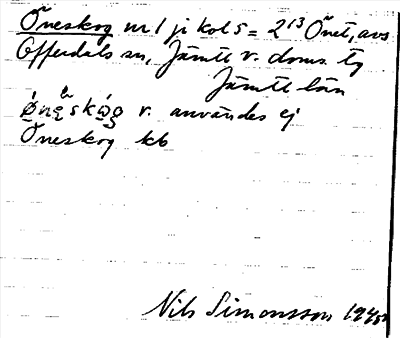 Öneskog nr 1 ji kol 5 = 2¹³ Önet, avs
Offerdals sn, Jämtl v. doms. tg
Jämtl län
v. användes ej
Öneskog kb
Nils Simonsson 194